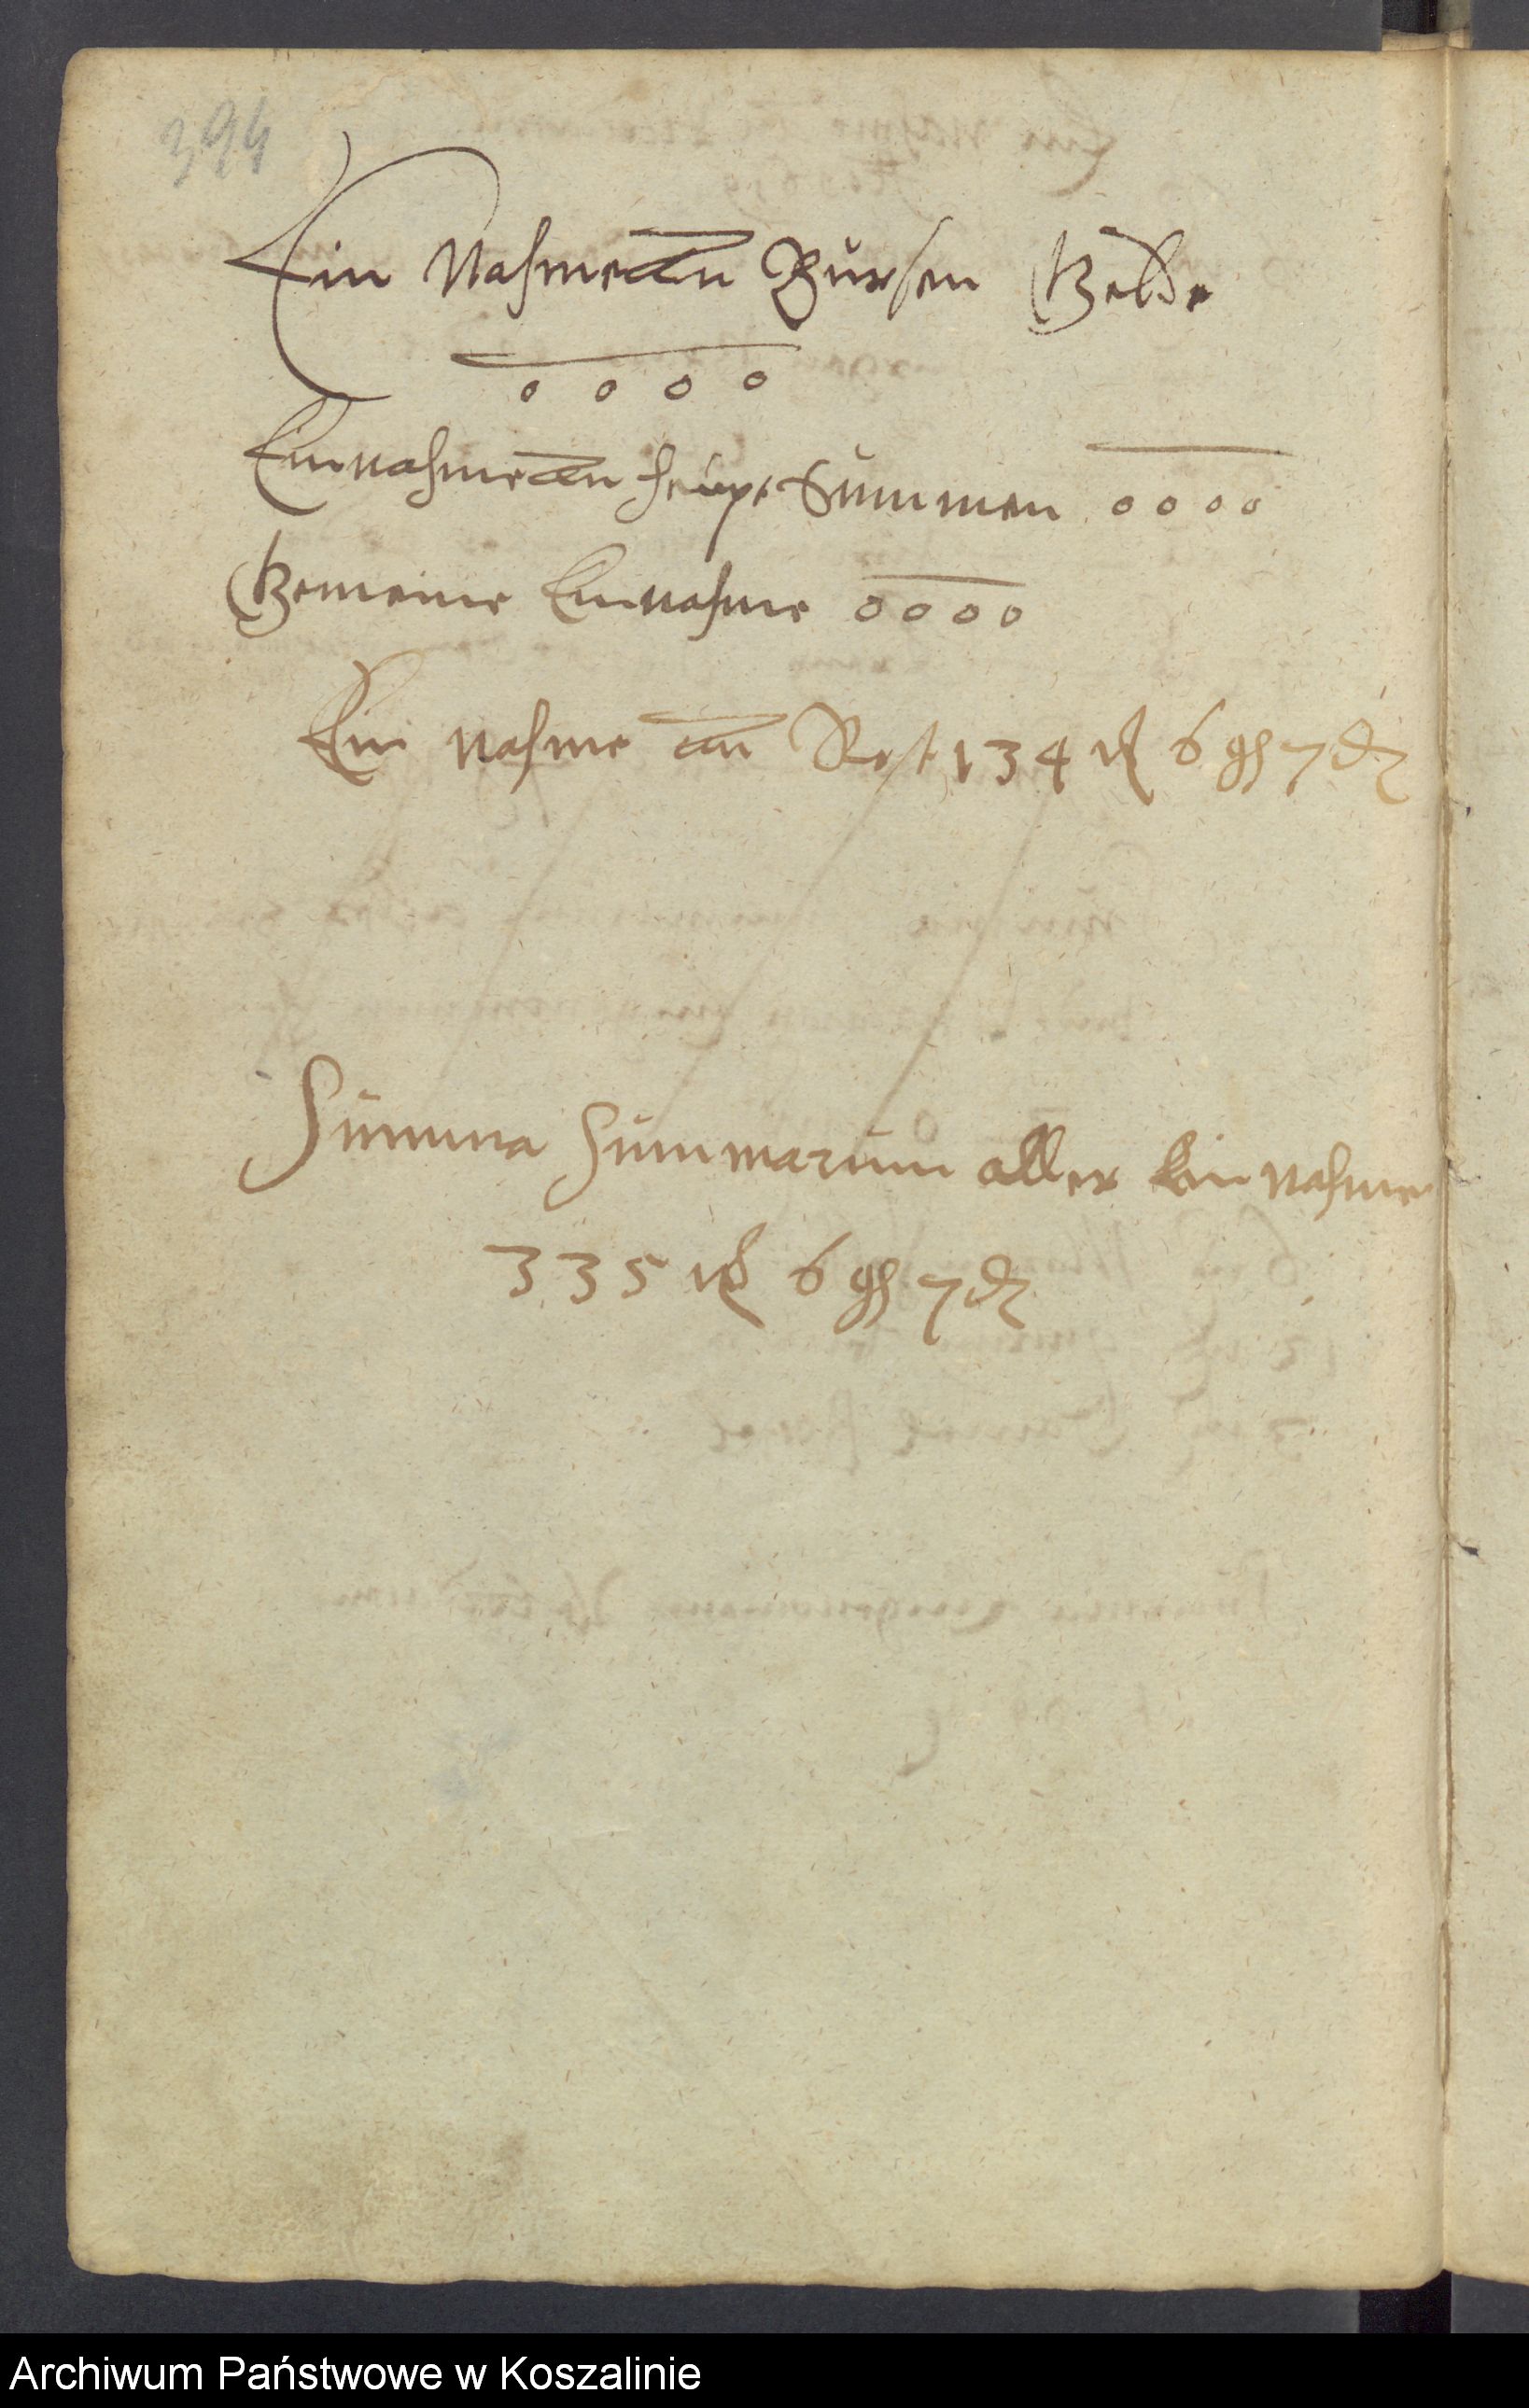 394
Ein Nahme an Bursen Gelde
0 0 0 0
Einnahme an heupt Summen 0 0 0 0
Gemeine Einnahme 0 0 0 0
Ein Nahme an Rest 134 fl 6 gß 7 d
Summa Summarum aller Ein Nahme
335 fl 6 gß 7 d
Archiwum Państwowe w Koszalinie